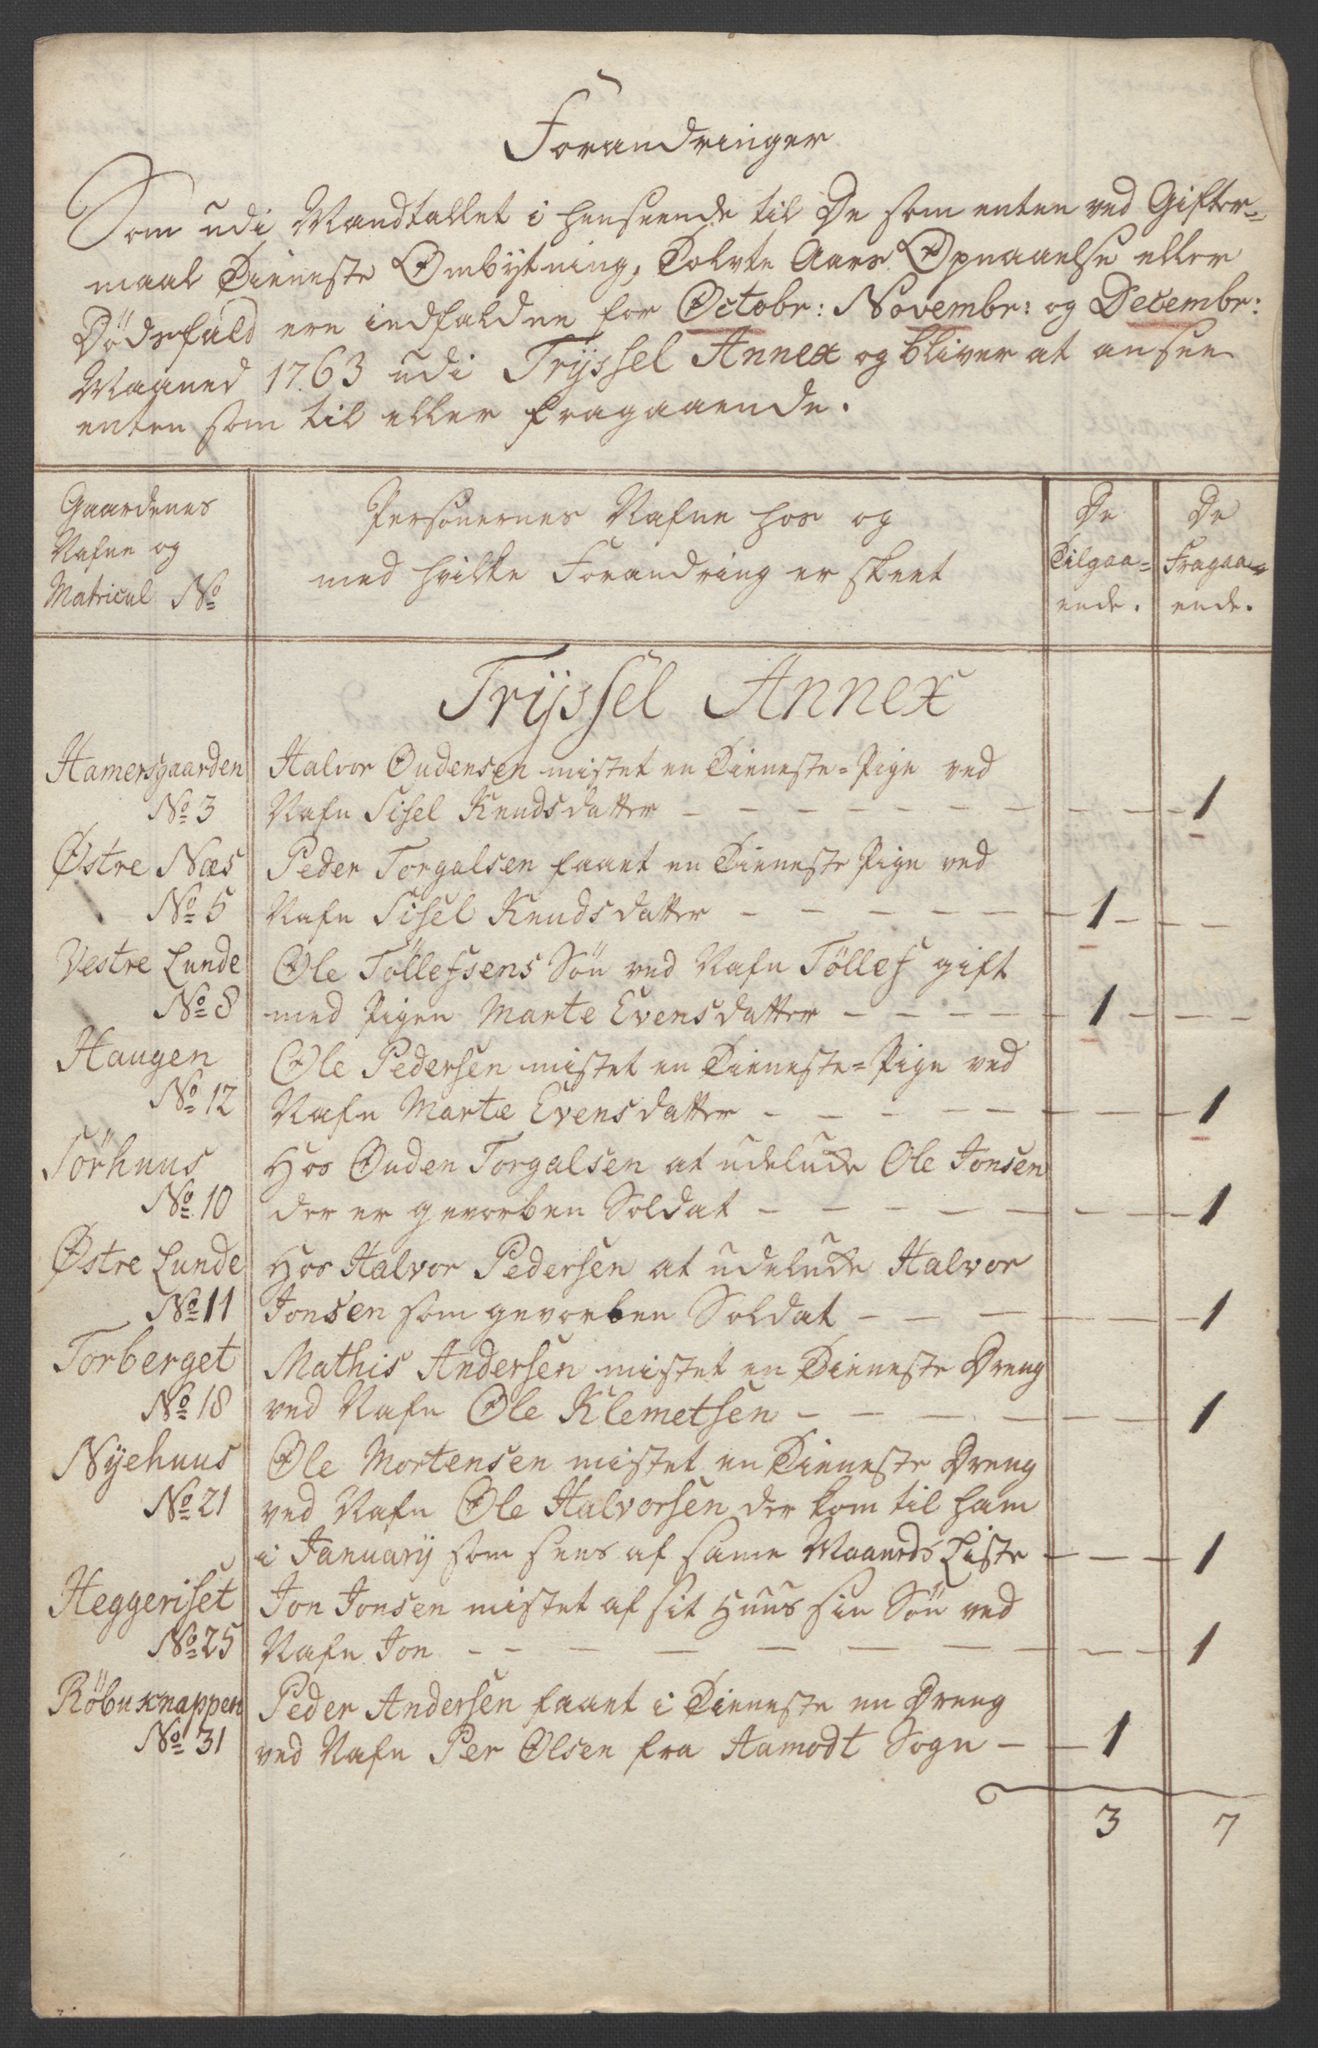 Forandringer
Som udi Mandtallet i henseende til De som enten ved Gifter=
maal Tieneste Ombÿtning, Tolvte Aars Opnaaelse eller
Dødsfald ere indfalden for Octobr: Novembr: og Decembr:
Maaned 1763 udi Trÿssel Annex og bliver at ansee
enten som til eller fragaaende.
Gaardenes
Nafne og
Matricul No
Personernes Nafne hos og
med hvilke Forandring er skeet
De
Tilgaa=
ende.
De
Fragaa=
ende.
Trÿssel Annex
Hamersgaarden Halvor Oudensen mistet en Tieneste=Pige ved
No 3 Nafn Sisel Knudsdatter - - - 1
Østre Næs Peder Torgalsen faaet en Tieneste Pige ved
No 5 Nafn Sisel Knudsdatter - - - 1 - -
Vestre Lunde Ole Töllefsens Sön ved Nafn Töllef gift
No 8 med Pigen Marte Evensdatter - - - 1 - -
Haugen Ole Pedersen mistet en Tieneste=Pige ved
No 12 Nafn Marte Evensdatter - - - 1
Sörhuus Hos Ouden Torgalsen at udelude Ole Jonsen
No 10 der er gevorben Soldat - - - 1
Østre Lunde Hos Halvor Pedersen at udelude Halvor
No 11 Jonsen som gevorben Soldat - - - 1
Torberget Mathis Andersen mistet en Tieneste Dreng
No 18 ved Nafn Ole Klemetsen - - - 1
Nÿehuus Ole Mortensen mistet en Tieneste Dreng
No 21 ved Nafn Ole Halvorsen der kom til ham
i Januarÿ som sees af same Maaneds Liste - - - 1
Heggeriset Jon Jonsen mistet af sit Huus sin Sön ved
No 25 Nafn Jon - - - 1
Röbuknappen Peder Andersen faaet i Tieneste en Dreng
No 31 ved Nafn Per Olsen fra Aamodt Sogn - - 1
3 7